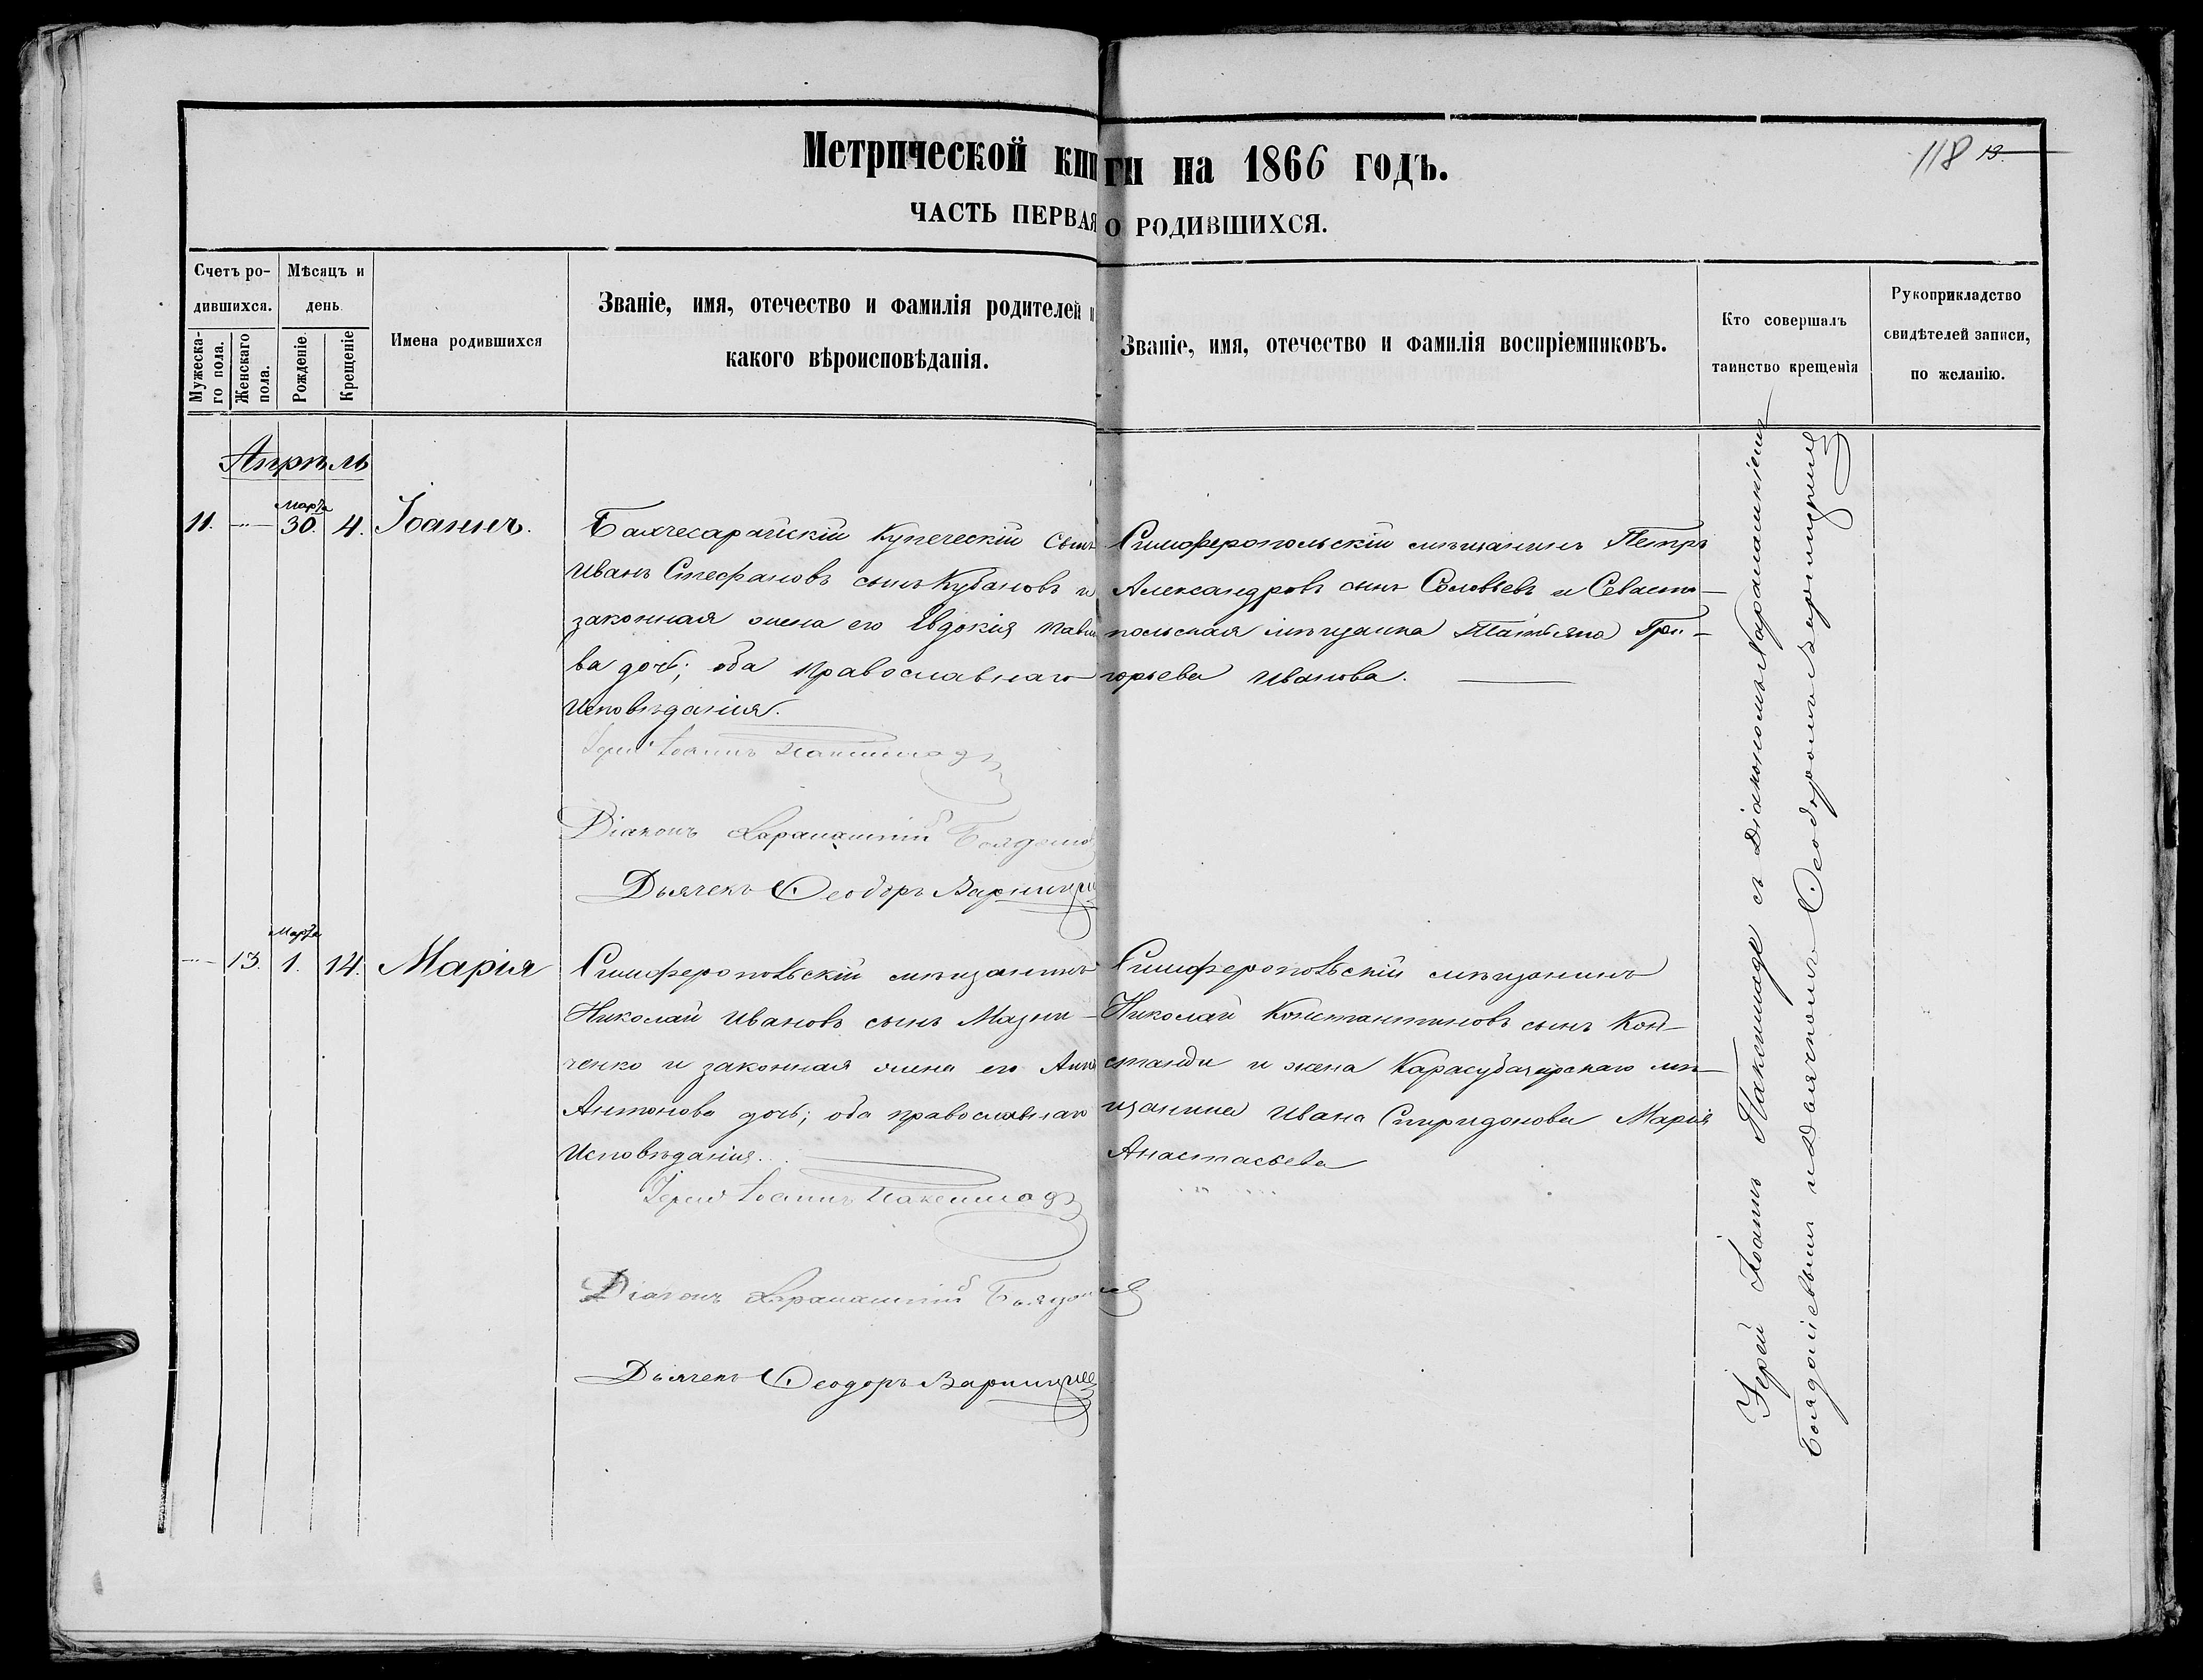 Метрической книги на 1866 годъ.
118 13.
ЧАСТЬ ПЕРВАЯ О РОДИВШИХСЯ.
Счетъ ро-
дившихся.
Мѣсяцъ и
день
Мужеска-
го пола.
Женскаго
пола.
Рожденіе.
Крещеніе
Имена родившихся
Званіе, имя, отечество и фамилія родителей и
какого вѣроисповѣданія.
Званіе, имя, отечество и фамилія воспріемниковъ.
Кто совершалъ
таинство крещенія
Рукоприкладство
свидѣтелей записи,
по желанію.
Апрѣль
11. Марта 30. 4. Іоаннъ.
Бахчесарайскій Купеческій Сынъ
Иванъ Стефановъ сынъ Кубановъ и
законная жена его Евдокія
ва дочь; оба православнаго
Исповѣданія.
Іерей Іоаннъ
Діаконъ
Дьячекъ Ѳеодоръ
Симферопольскій мѣщанинъ Петръ
Александровъ сынъ Соловьевъ и Севасто-
польская мѣщанка Татьяна Гри-
горьева Иванова.
13. Марта 1. 14. Марія
Симферопольскій мѣщанинъ
Николай Ивановъ сынъ Мазни-
ченко и законная жена его Анна
Антонова дочь; оба православнаго
Исповѣданія.
Іерей Іоаннъ
Діаконъ
Дьячекъ Ѳеодоръ
Симферопольскій мѣщанинъ
Николай Константиновъ сынъ Кон-
станди и жена Карасубазарскаго мѣ-
щанина Ивана Спиридонова Марія
Анастасьева
Іерей Іоаннъ с Діакономъ
и Дьячкомъ Ѳеодоромъ